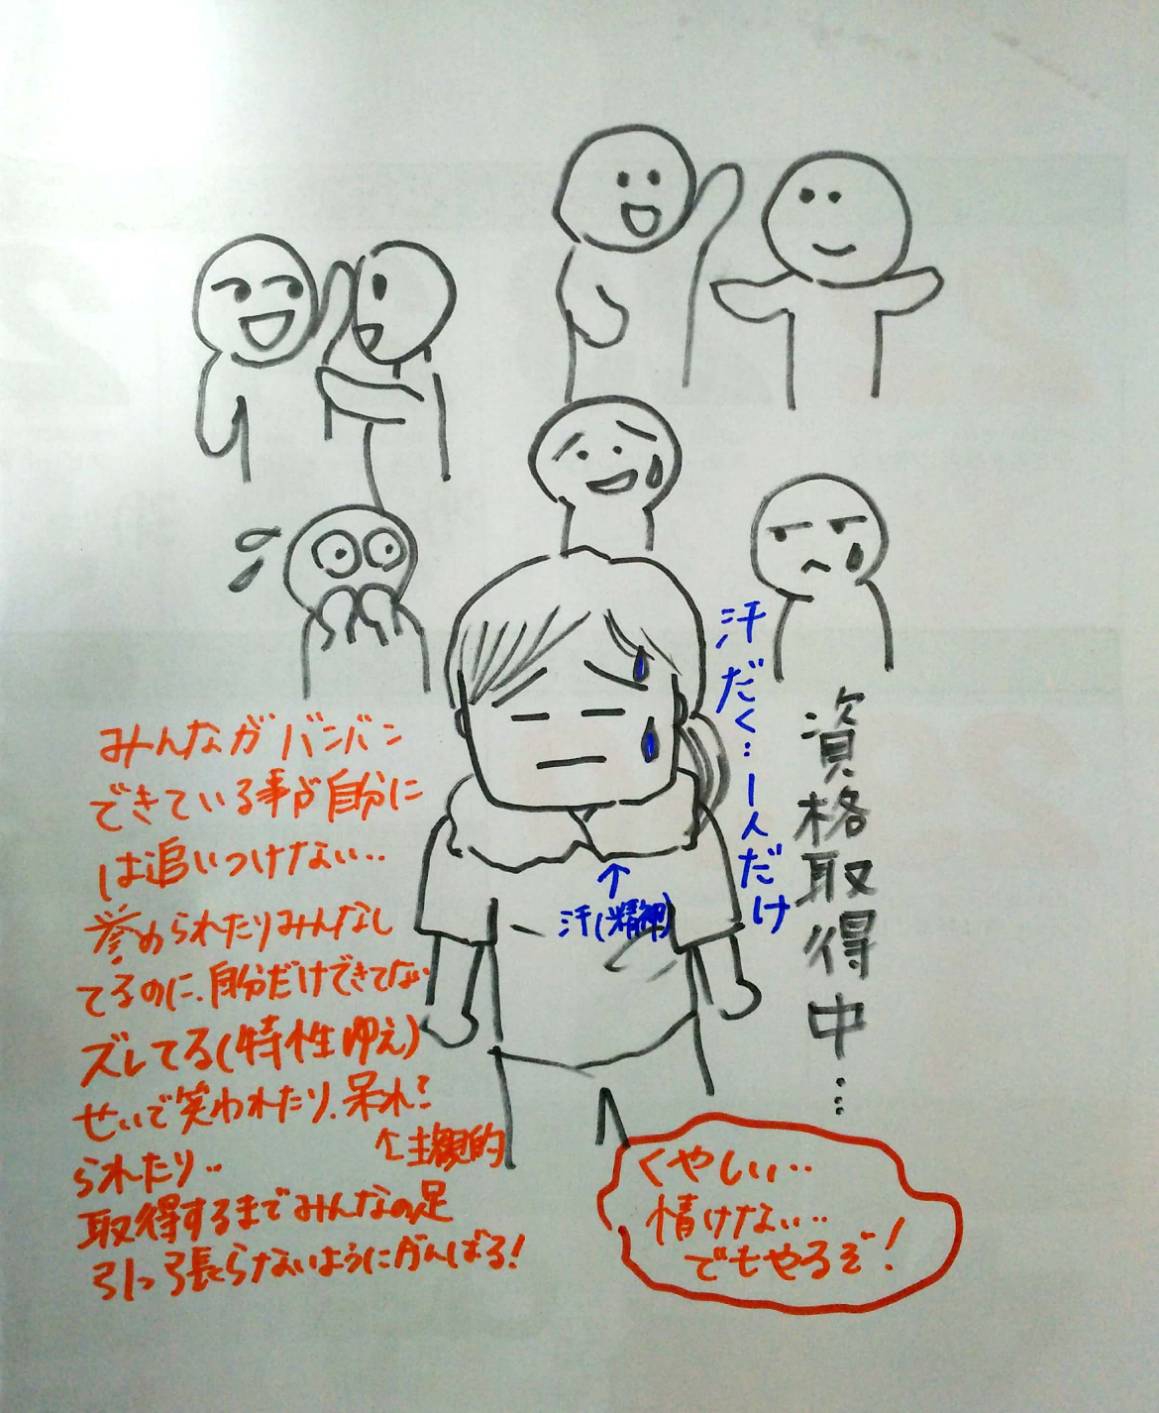 汗だく…1人だけ
資格取得中…
↑
汗(精神)
みんながバンバン
できている事が自分に
は追いつけない…
誉められたりみんなし
てるのに、自分だけできてない
ズレてる(特性ゆえ)
せいで笑われたり、呆れ?
↑主観的
られたり…
取得するまでみんなの足
引っ張らないようにがんばる!
くやしい…
情けない…
でもやるぞ!